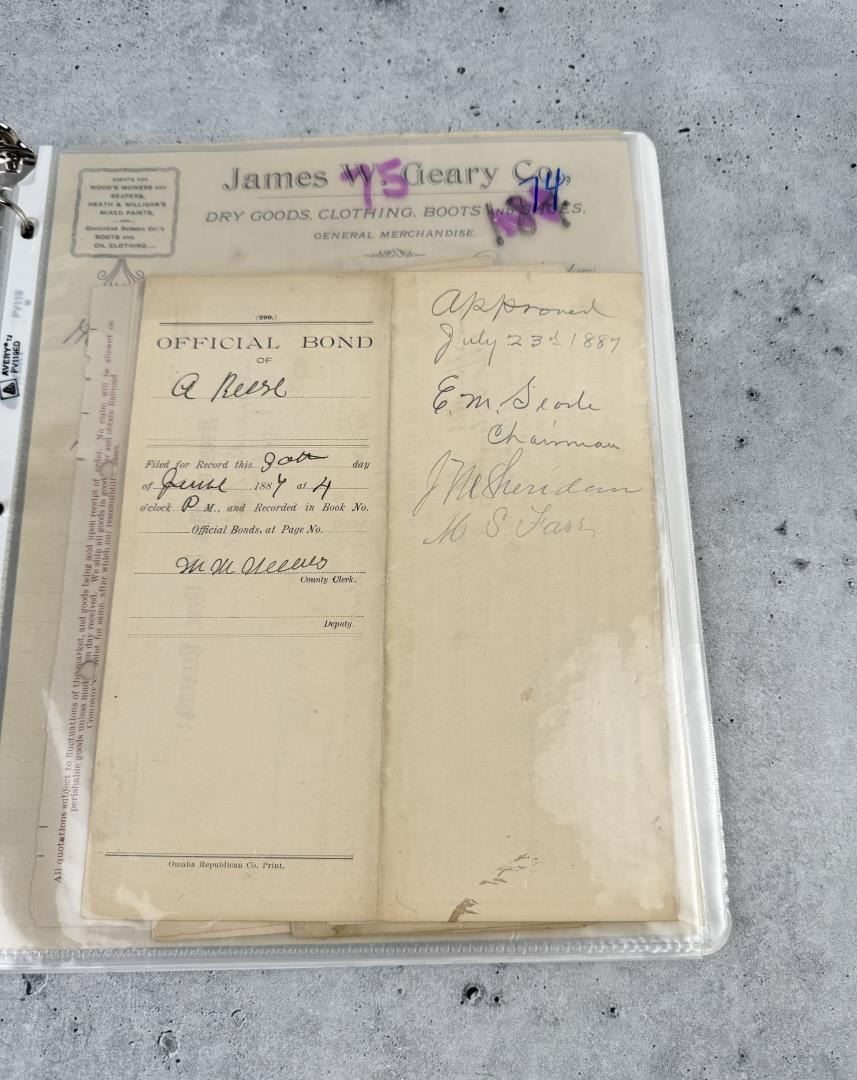 AGENTS FOR
WOOD'S MOWERS AND
REAPERS,
HEATH & MILLIGAN'S
MIXED PAINTS,
AND
GOODYEAR RUBBER CO.'S
BOOTS AND
OIL CLOTHING
James W. Geary Co.,
75
74
DRY GOODS, CLOTHING, BOOTS AND SHOES.
GENERAL MERCHANDISE.
AVERY
PV119ED
PV119
All quotations subject to fluctuations of the market, and goods being sold upon receipt of order. No claim will be allowed on
perishable goods unless made on day received. We ship all goods in good order and obtain Railroad
Company's receipt for same, after which our responsibility ceases.
(290.)
OFFICIAL BOND
OF
A Reese
Filed for Record this 30th day
of June 1887 at 4
o'clock P M., and Recorded in Book No.
Official Bonds, at Page No.
County Clerk.
Deputy.
Omaha Republican Co. Print.
Approved
July 23d 1887
E. M. Searle
Chairman
J M Sheridan
M S